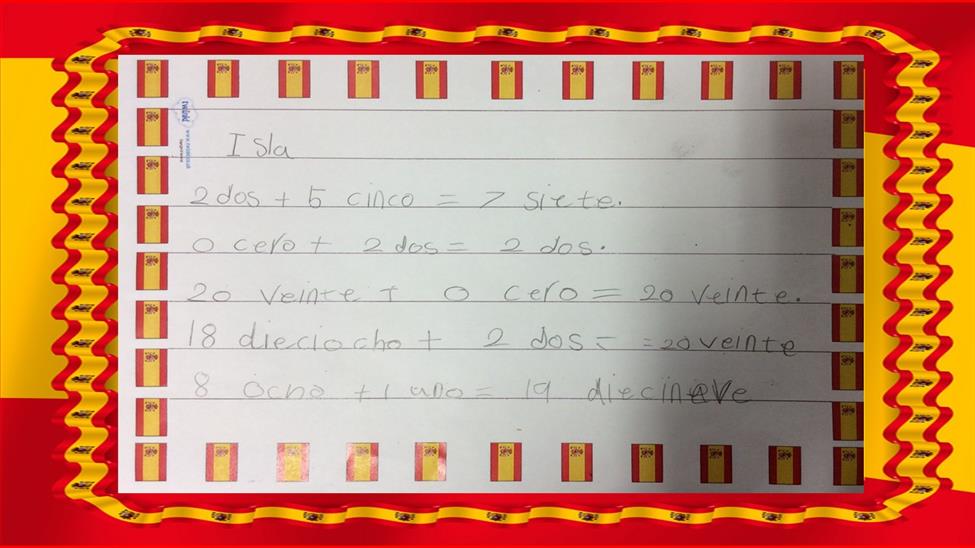 twinkl
Isla
2 dos + 5 cinco = 7 siete.
0 cero + 2 dos = 2 dos.
20 veinte + 0 cero = 20 veinte.
18 dieciocho + 2 dos = = 20 veinte
8 ocho + 1 uno = 19 diecineve